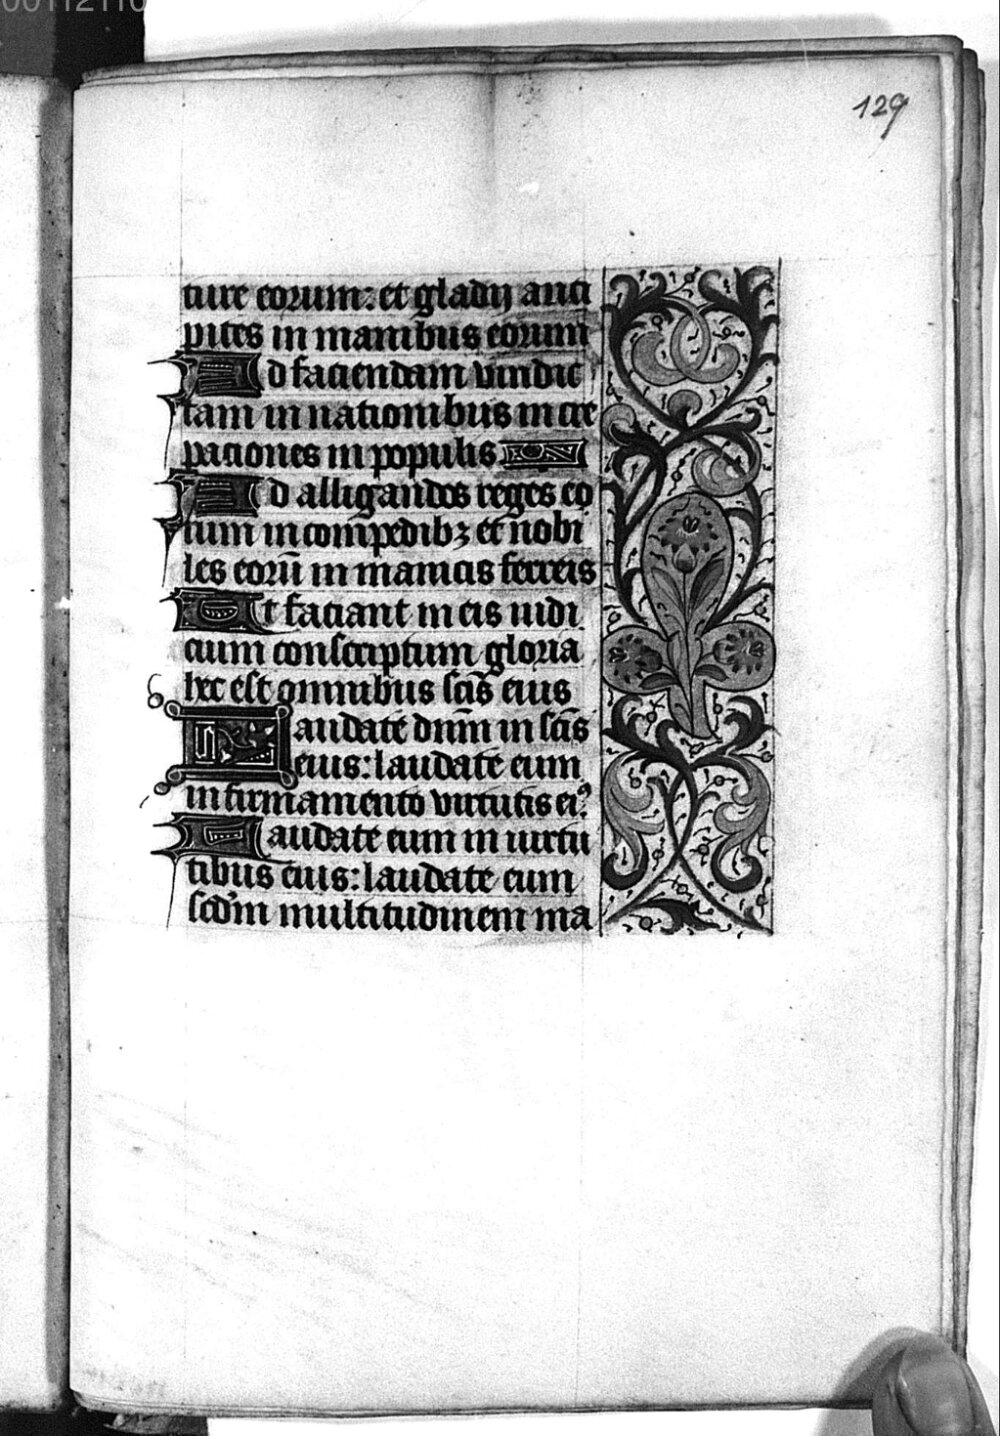 00112110
129
ture eorum: et gladij anci
pites in manibus eorum
Ad faciendam vindic
tam in nationibus incre
paciones in populis
Ad alligandos reges eo
rum in compedibꝫ et nobi
les eorū in manicis ferreis
Ut faciant in eis iudi
cium conscriptum gloria
hec est omnibus scīs eius
Laudate dnm̄ in scīs
eius: laudate eum
in firmamento virtutis eiꝰ
Laudate eum in virtu
tibus eius: laudate eum
scdm̄ multitudinem ma